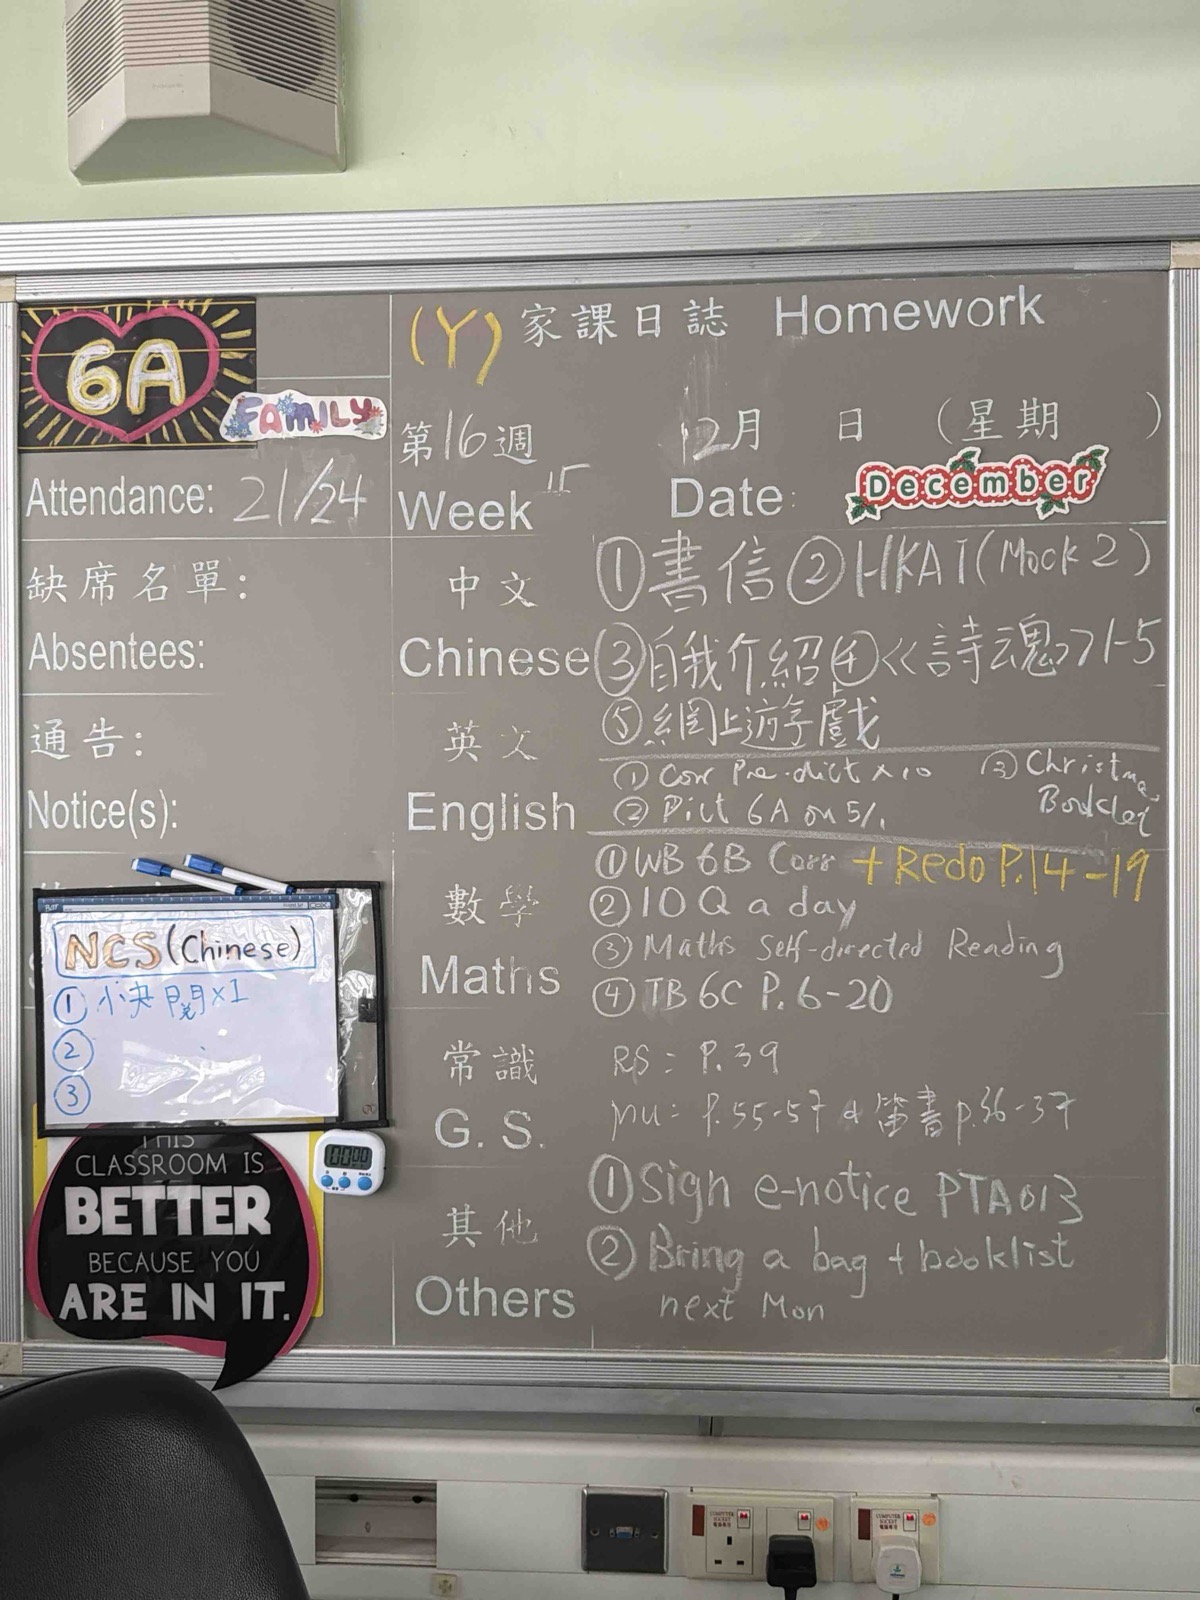 6A
FAMILY
(Y) 家課日誌 Homework
第16週 12月 日 (星期 )
Attendance: 21/24
Week 15 Date: December
缺席名單:
Absentees:
通告:
Notice(s):
中文
Chinese
①書信 ②HKAT(Mock 2)
③自我介紹 ④<<詩魂>>1-5
⑤網上遊學戲
英文
English
① Corr Pre-dict x10 ③ Christmas Booklet
② Dict 6A on 5/1
數學
Maths
①WB 6B Corr + Redo P.14-19
②10 Q a day
③ Maths Self-directed Reading
④ TB 6C P.6-20
常識
G. S.
P.39
P.55-57 書 p.36-37
其他
Others
①Sign e-notice PTA013
② Bring a bag + booklist
next Mon
NCS (Chinese)
① 閱x1
②
③
THIS
CLASSROOM IS
BETTER
BECAUSE YOU
ARE IN IT.
COMPUTER SOCKET
COMPUTER SOCKET